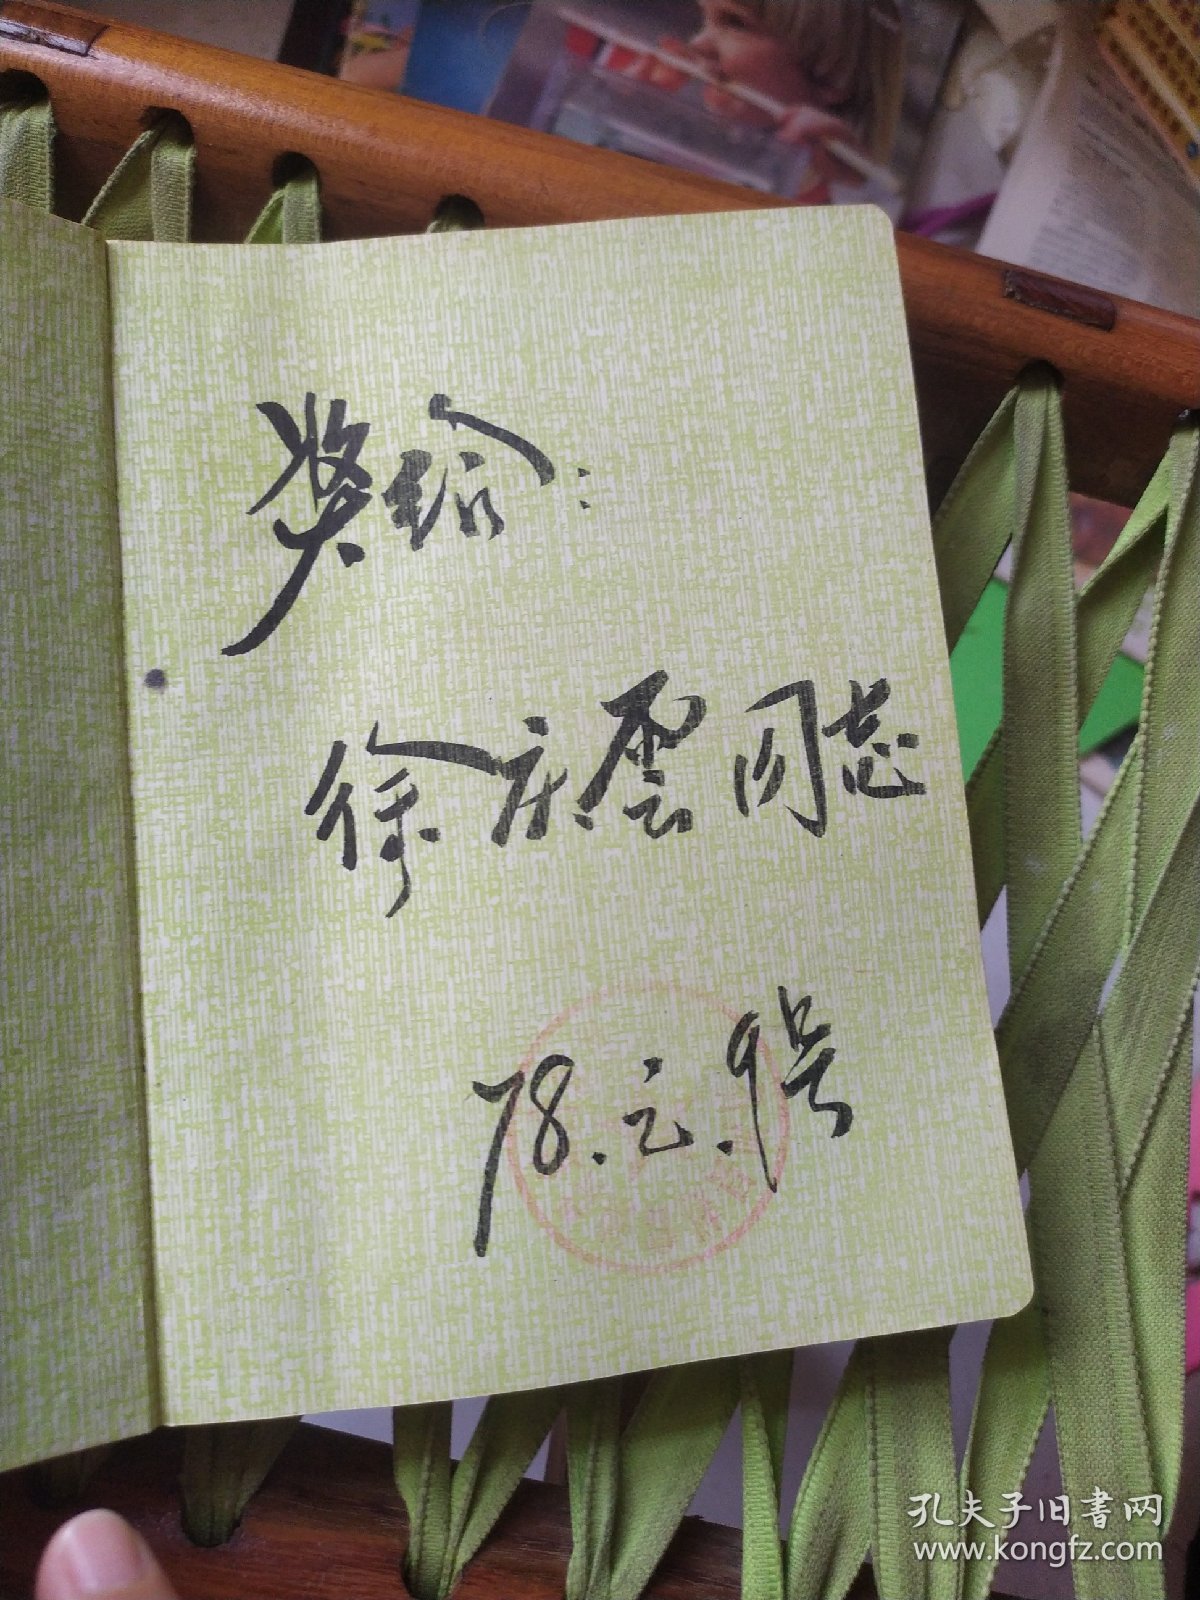 奖给：
徐庆雲同志
78.元.9号
孔夫子旧書网
www.kongfz.com